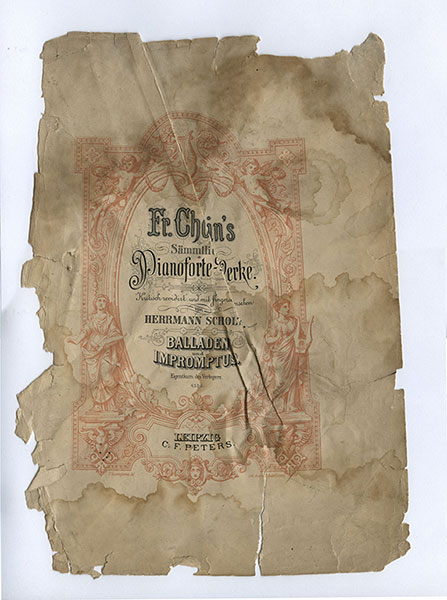 Fr. Chin's
Sämmtli
Pianoforte-Werke.
Kritisch revidirt und mit Fingers
HERRMANN SCHOL
BALLADEN
und
IMPROMPTUS.
Eigenthum des Verlegers
LEIPZIG
C. F. PETERS